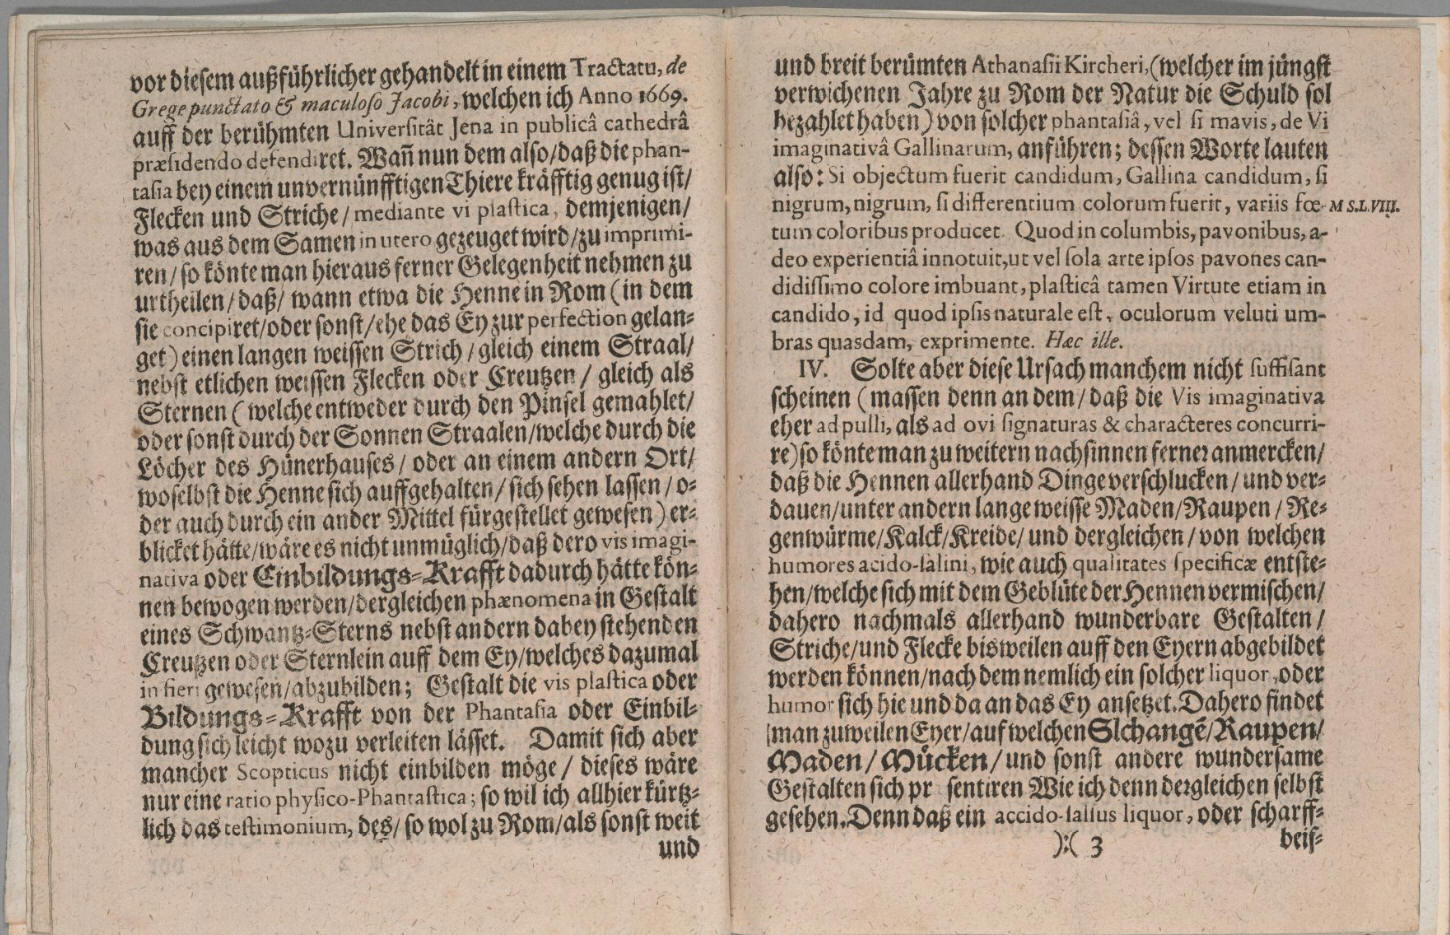 vor diesem außführlicher gehandelt in einem Tractatu, de
Grege punctato & maculoso Jacobi, welchen ich Anno 1669.
auff der berühmten Universität Jena in publicâ cathedrâ
præsidendo defendiret. Wañ nun dem also/daß die phan-
tasia bey einem unvernünfftigen Thiere kräfftig genug ist/
Flecken und Striche/mediante vi plastica, demjenigen/
was aus dem Samen in utero gezeuget wird/zu imprimi-
ren/so könte man hieraus ferner Gelegenheit nehmen zu
urtheilen/daß/ wann etwa die Henne in Rom (in dem
sie concipiret/oder sonst/ehe das Ey zur perfection gelan-
get) einen langen weissen Strich/gleich einem Straal/
nebst etlichen weissen Flecken oder Creutzen/ gleich als
Sternen (welche entweder durch den Pinsel gemahlet/
oder sonst durch der Sonnen Straalen/welche durch die
Löcher des Hünerhauses/ oder an einem andern Ort/
woselbst die Henne sich auffgehalten/sich sehen lassen/o-
der auch durch ein ander Mittel fürgestellet gewesen) er-
blicket hätte/wäre es nicht unmüglich/daß dero vis imagi-
nativa oder Einbildungs-Krafft dadurch hätte kön-
nen bewogen werden/dergleichen phænomena in Gestalt
eines Schwantz-Sterns nebst andern dabey stehenden
Creutzen oder Sternlein auff dem Ey/welches dazumal
in fieri gewesen/abzubilden; Gestalt die vis plastica oder
Bildungs-Krafft von der Phantasia oder Einbil-
dung sich leicht wozu verleiten lässet. Damit sich aber
mancher Scopticus nicht einbilden möge/ dieses wäre
nur eine ratio physico-Phantastica; so wil ich allhier kürtz-
lich das testimonium, des/ so wol zu Rom/als sonst weit
und
und breit berümten Athanasii Kircheri,(welcher im jüngst
verwichenen Jahre zu Rom der Natur die Schuld sol
bezahlet haben) von solcher phantasiâ, vel si mavis, de Vi
imaginativâ Gallinarum, anführen; dessen Worte lauten
also: Si objectum fuerit candidum, Gallina candidum, si
nigrum, nigrum, si differentium colorum fuerit, variis fœ- M S.L.VIII.
tum coloribus producet. Quod in columbis, pavonibus, a-
deo experientiâ innotuit, ut vel sola arte ipsos pavones can-
didissimo colore imbuant, plasticâ tamen Virtute etiam in
candido, id quod ipsis naturale est, oculorum veluti um-
bras quasdam, exprimente. Hæc ille.
IV. Solte aber diese Ursach manchem nicht suffisant
scheinen (massen denn an dem/ daß die Vis imaginativa
eher ad pulli, als ad ovi signaturas & characteres concurri-
re) so könte man zu weitern nachsinnen ferner anmercken/
daß die Hennen allerhand Dinge verschlucken/ und ver-
dauen/unter andern lange weisse Maden/Raupen/Re-
genwürme/Kalck/Kreide/ und dergleichen/ von welchen
humores acido-salini, wie auch qualitates specificæ entste-
hen/welche sich mit dem Geblüte der Hennen vermischen/
dahero nachmals allerhand wunderbare Gestalten/
Striche/und Flecke bisweilen auff den Eyern abgebildet
werden können/nach dem nemlich ein solcher liquor, oder
humor sich hie und da an das Ey ansetzet. Dahero findet
man zuweilen Eyer/auf welchen Slchangẽ/Raupen/
Maden/ Mücken/ und sonst andere wundersame
Gestalten sich pr sentiren Wie ich denn dergleichen selbst
gesehen. Denn daß ein accido-salsus liquor, oder scharff-
):( 3 beis-